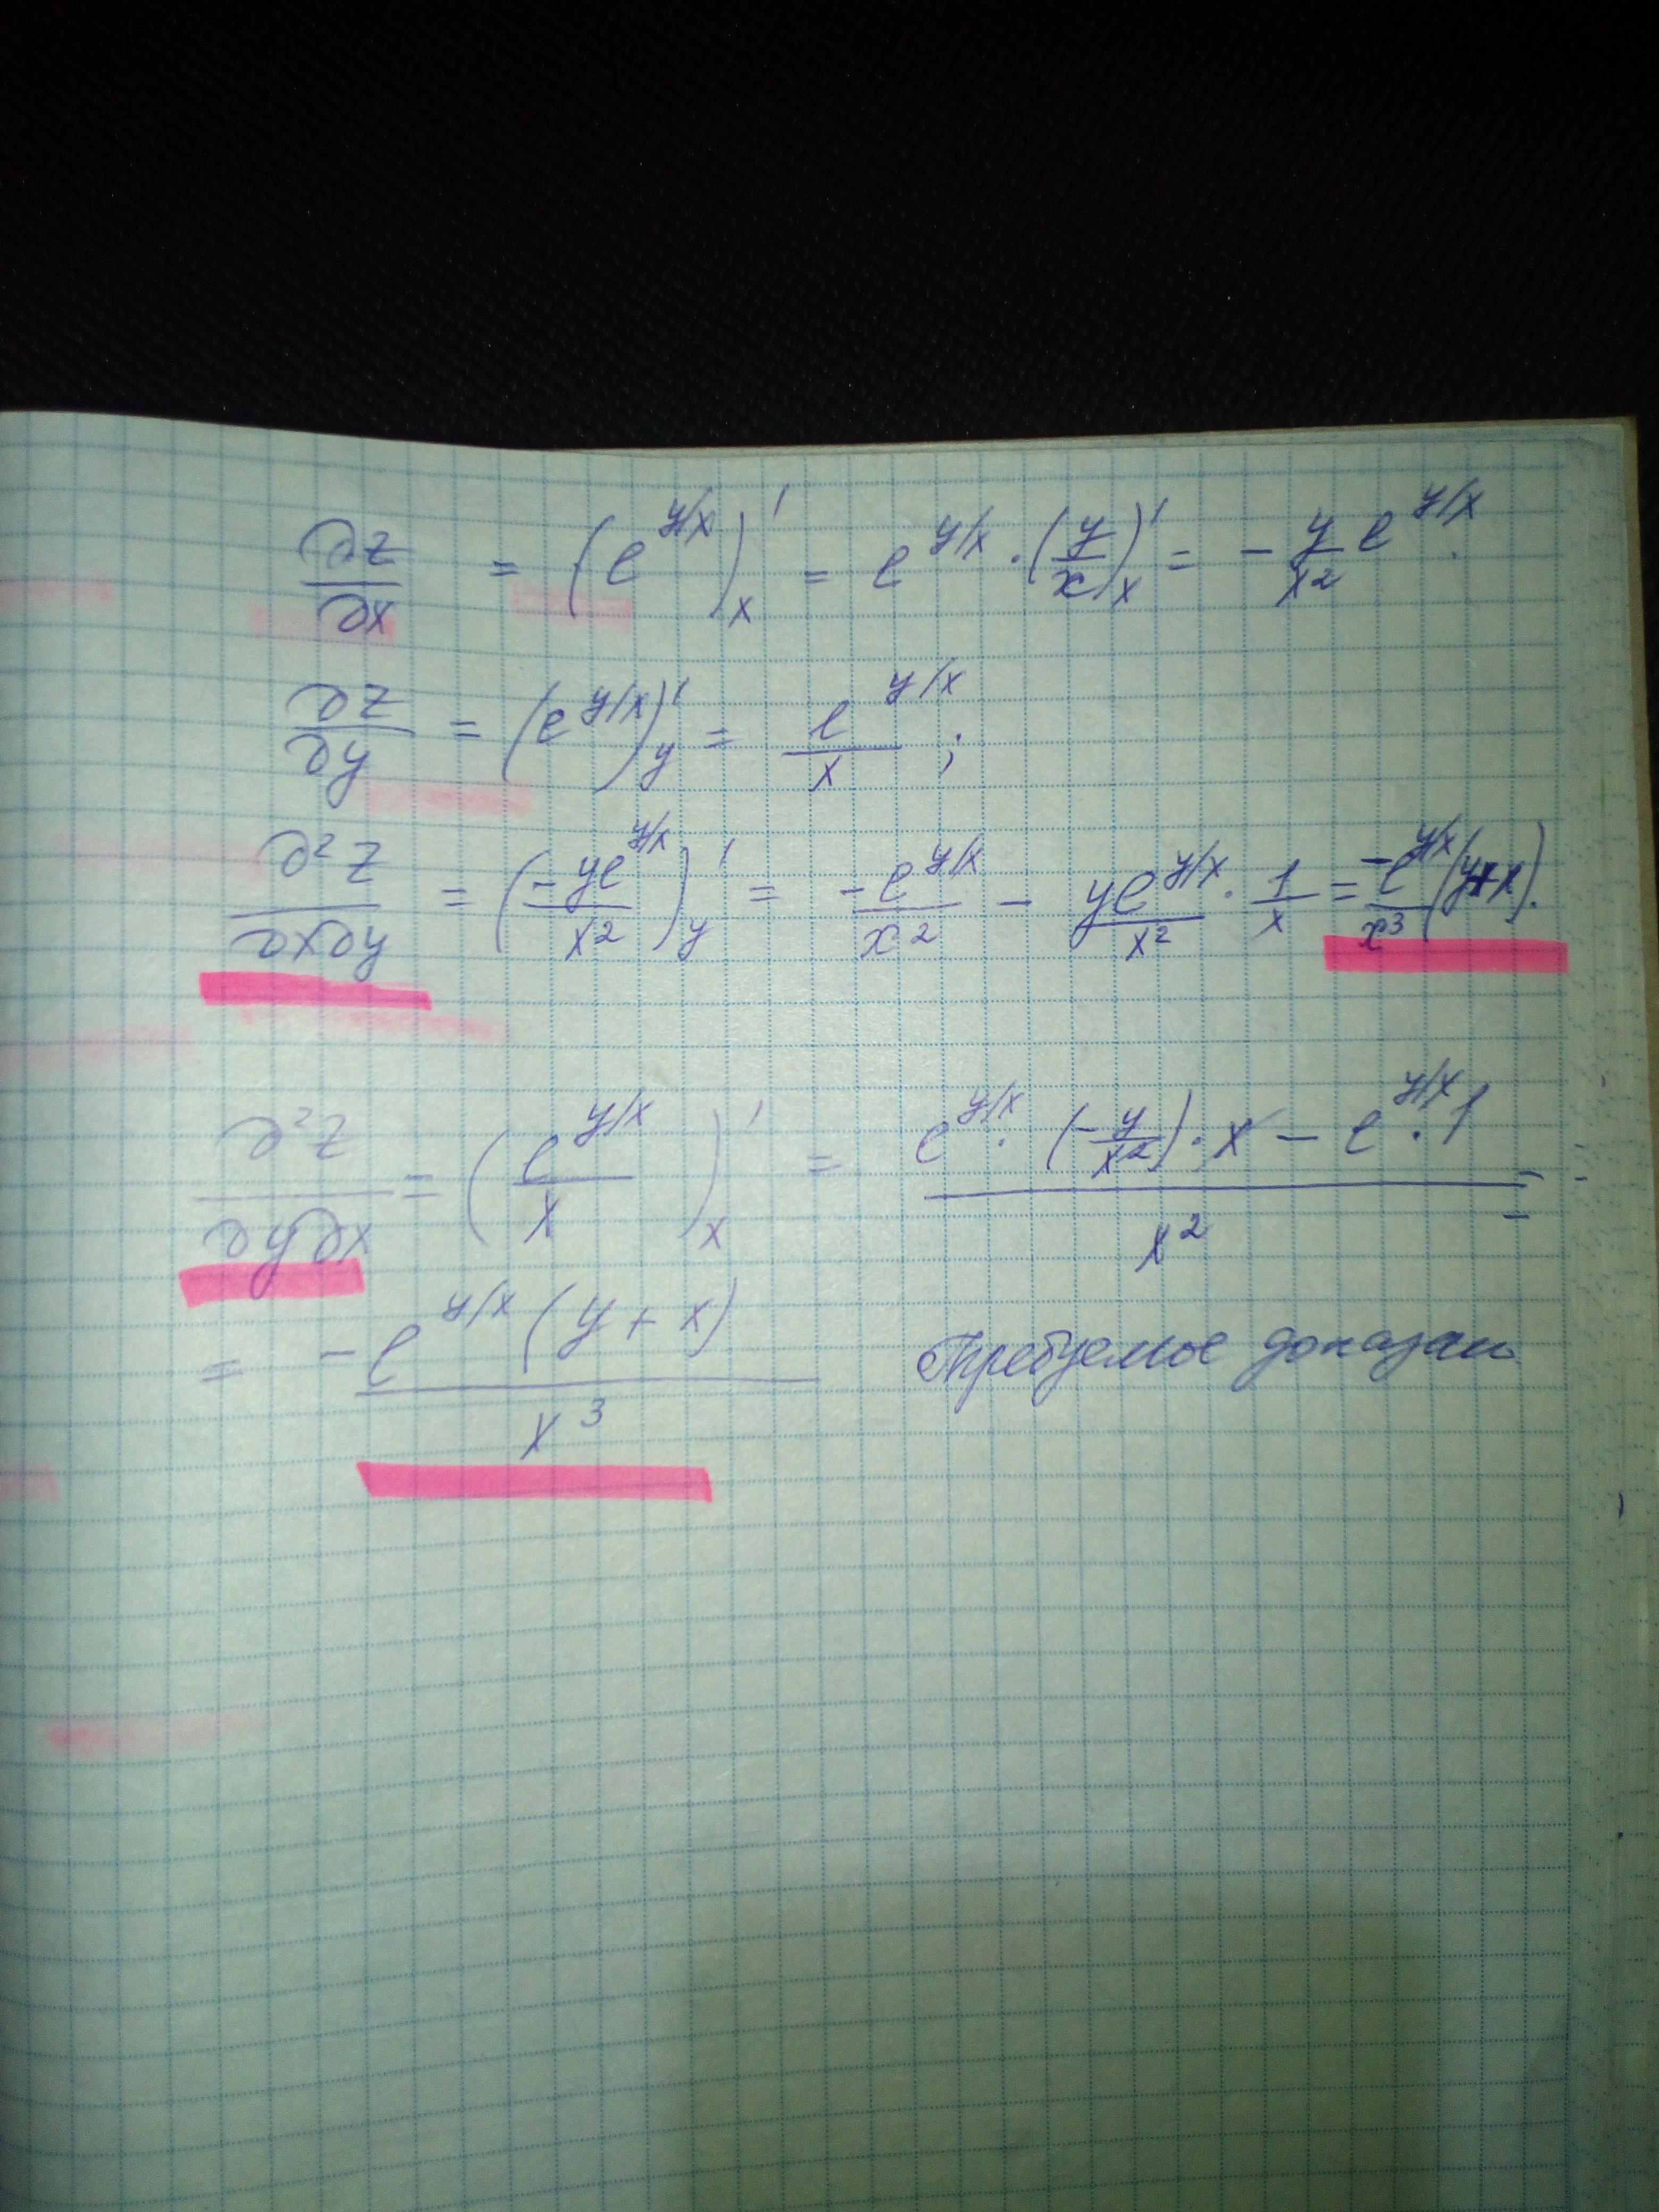 ∂z/∂x = (e^{y/x})'_x = e^{y/x} · (y/x)'_x = - y/x² e^{y/x}.
∂z/∂y = (e^{y/x})'_y = e^{y/x}/x ;
∂²z/∂x∂y = (-ye^{y/x}/x²)'_y = -e^{y/x}/x² - ye^{y/x}/x² · 1/x = -e^{y/x}(y+x)/x³.
∂²z/∂y∂x = (e^{y/x}/x)'_x = (e^{y/x} · (-y/x²) · x - e^{y/x} · 1)/x² =
= -e^{y/x}(y+x)/x³ Требуемое доказан